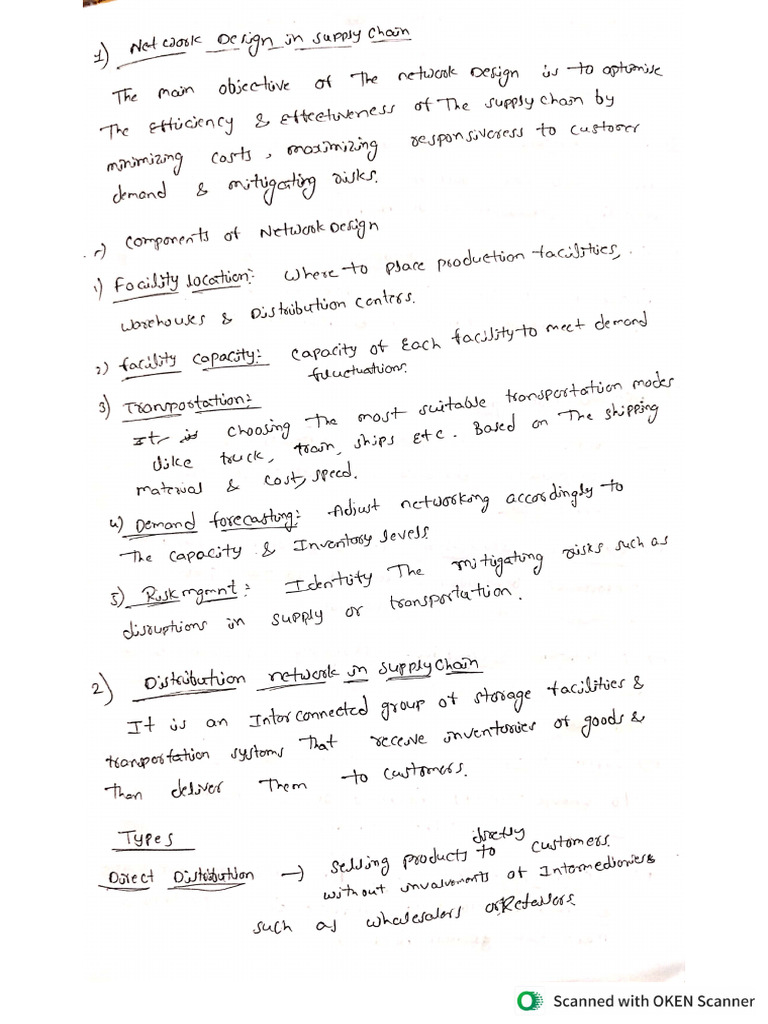 1) Network Design in Supply Chain
The main objective of The network Design is to optimise
The efficiency & effectiveness of The supply chain by
minimizing costs, maximizing responsiveness to customer
demand & mitigating risks.
Components of Network Design
1) Facility location: Where to place production facilities,
warehouses & Distribution centers.
2) facility capacity: capacity of Each facility to meet demand
fluctuations.
3) Transportation:
It is choosing The most suitable transportation modes
like truck, train, ships etc. Based on The shipping
material & cost, speed.
4) Demand forecasting: Adjust networking accordingly to
The capacity & Inventory levels
5) Risk mgmnt: Identity The mitigating risks such as
disruptions in supply or transportation.
2) Distribution network in supply Chain
It is an Interconnected group of storage facilities &
transportation systems That receive inventories of goods &
Then deliver Them to customers.
Types
Direct Distribution → Selling products directly to customers.
without involvements of Intermediories
such as wholesalers or Retailers.
Scanned with OKEN Scanner